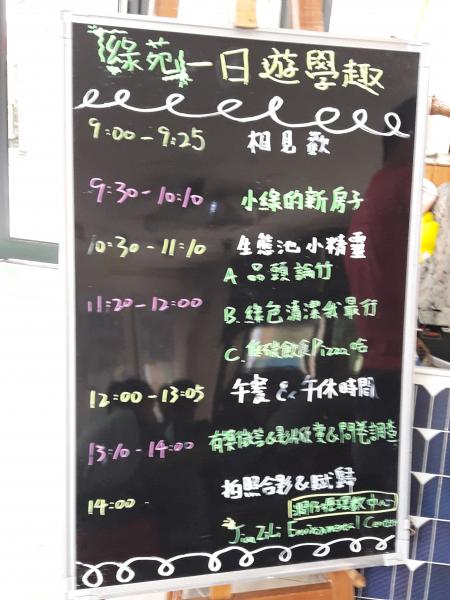 綠苑一日遊學趣
9:00-9:25 相見歡
9:30-10:10 小綠的新房子
10:30-11:10 生態池小精靈
A. 品頭論竹
11:20-12:00 B. 綠色清潔我最行
C. 低碳飲食Pizza
12:00-13:05 午餐&午休時間
13:10-14:00 有獎徵答&影片欣賞&問卷調查
14:00 拍照合影&賦歸
環教中心
Environmental Center